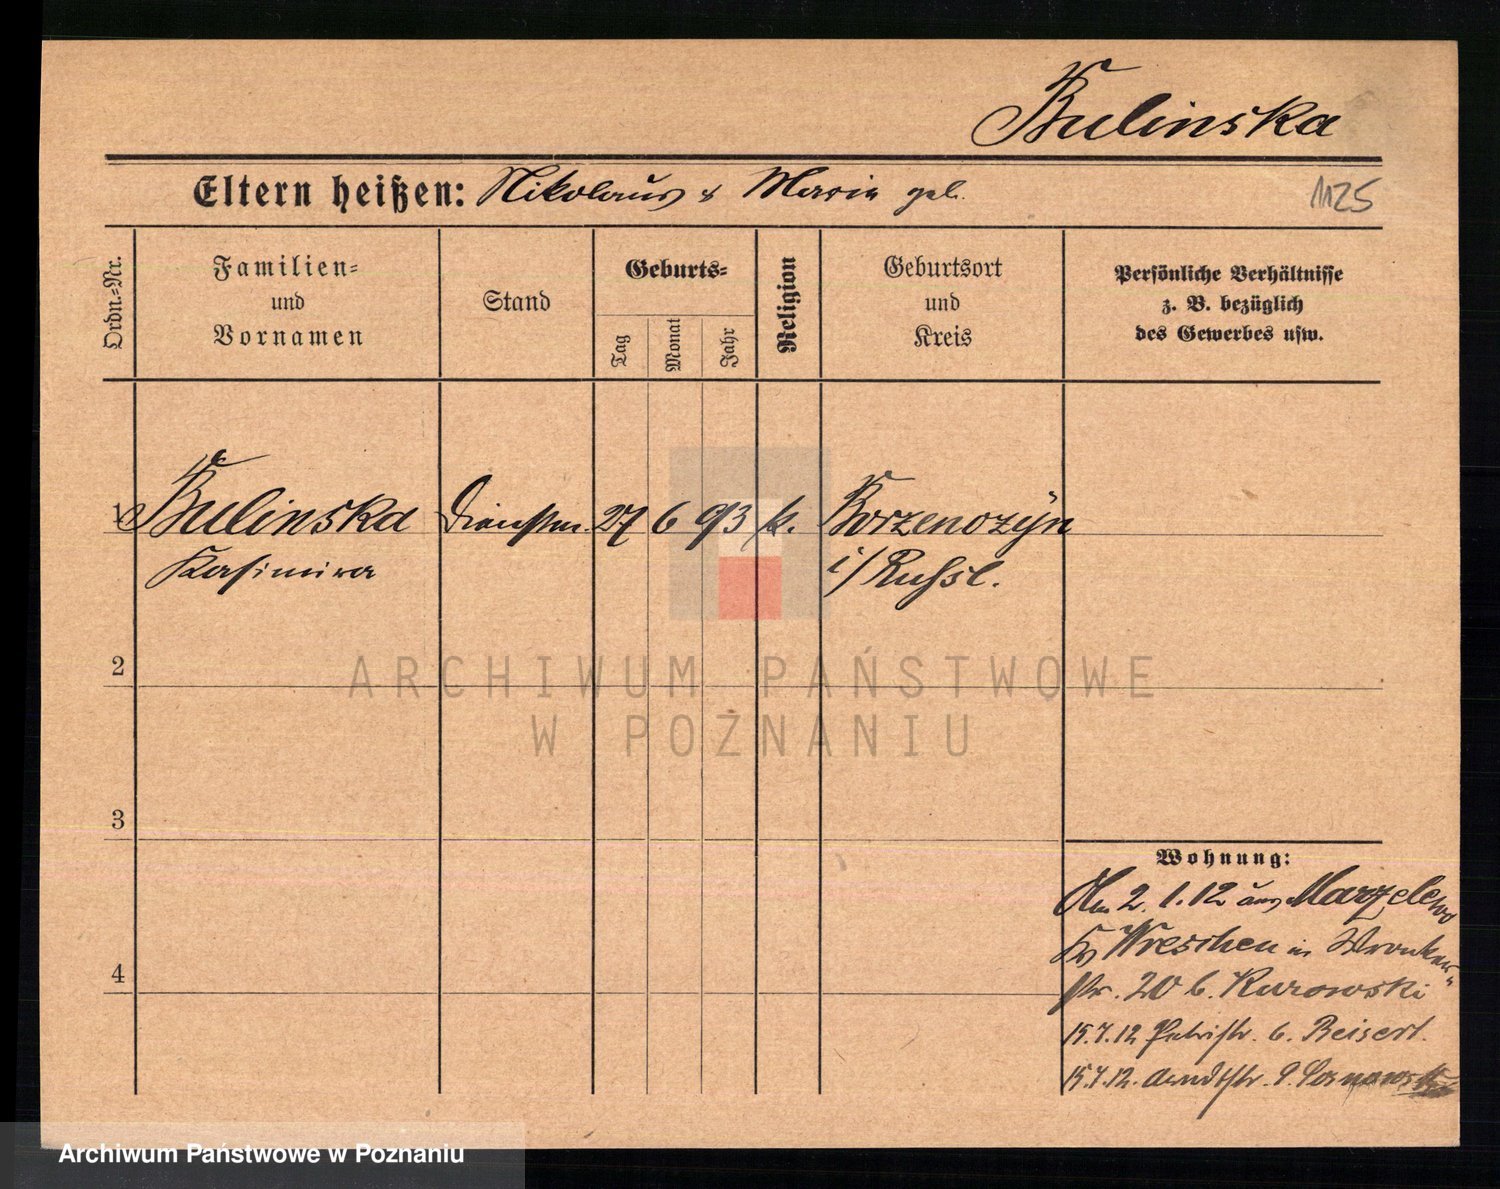 Kulinska
Eltern heißen: Nikolaus & Maria geb.
1125
Ordn.=Nr.
Familien=
und
Vornamen
Stand
Geburts=
Tag
Monat
Jahr
Religion
Geburtsort
und
Kreis
Persönliche Verhältnisse
z. B. bezüglich
des Gewerbes usw.
1 Kulinska Dienstm. 27 6 93 k.
Kasimira i/Russl.
2
3
4
Wohnung:
Am 2.1.12 aus Marzelewo
Kr Wreschen in Wronker=
str. 20 b. Kurowski
15.4.12 Petristr. 6. Reisert.
15.7.12. Arndtstr. 9
ARCHIWUM PAŃSTWOWE
W POZNANIU
Archiwum Państwowe w Poznaniu